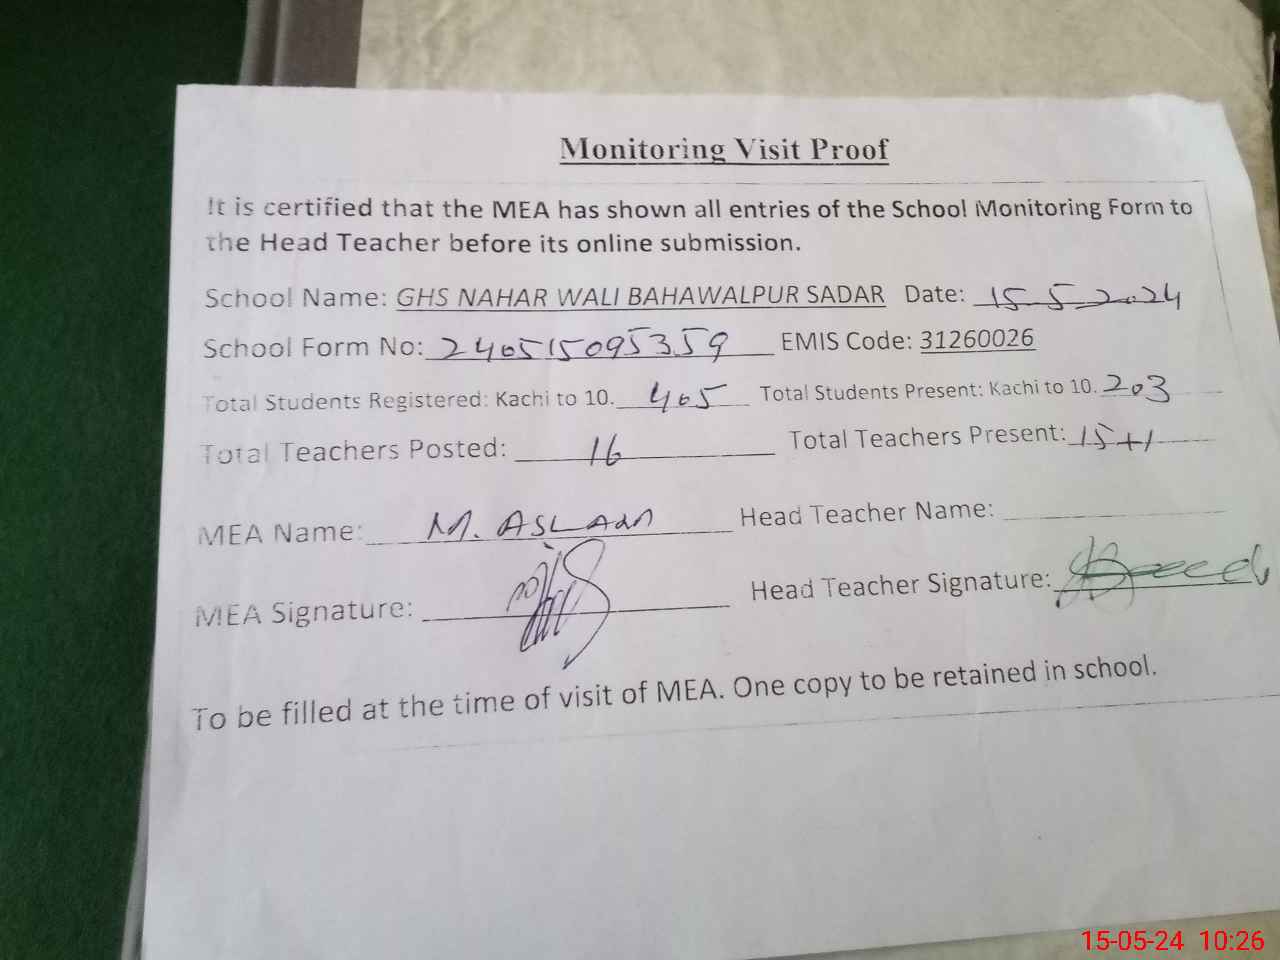 Monitoring Visit Proof
It is certified that the MEA has shown all entries of the School Monitoring Form to
the Head Teacher before its online submission.
School Name: GHS NAHAR WALI BAHAWALPUR SADAR Date: 15-5-2024
School Form No: 240515095359 EMIS Code: 31260026
Total Students Registered: Kachi to 10. 405 Total Students Present: Kachi to 10. 203
Total Teachers Posted: 16 Total Teachers Present: 15+1
MEA Name: M. ASLAM Head Teacher Name:
MEA Signature: Head Teacher Signature:
To be filled at the time of visit of MEA. One copy to be retained in school.
15-05-24 10:26